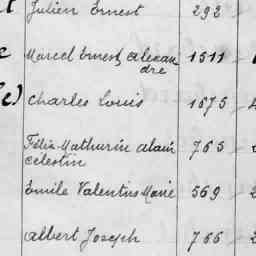 Julien Ernest 292
Marcel Ernest Alexan 1511
dre
(e) Charles Louis 1575
Félix Mathurin Alain 765
Célestin
Emile Valentin Marie 569
Albert Joseph 766